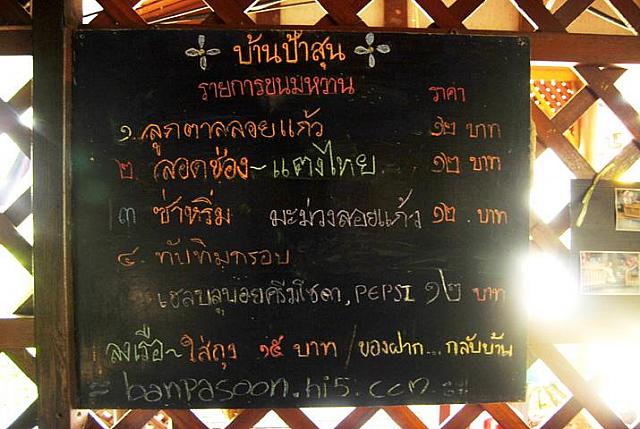 บ้านป้าสุน
รายการขนมหวาน ราคา
๑. ลูกตาลลอยแก้ว ๑๒ บาท
๒. ลอดช่อง~แตงไทย ๑๒ บาท
๓ ซ่าหริ่ม มะม่วงลอยแก้ว ๑๒. บาท
๔. ทับทิมกรอบ
เฮลบลูบอยครีมโซดา, PEPSI ๑๒ บาท
ลงเรือ~ใส่ถุง ๑๕ บาท / ของฝาก... กลับบ้าน
= banpasoon.hi5.com =